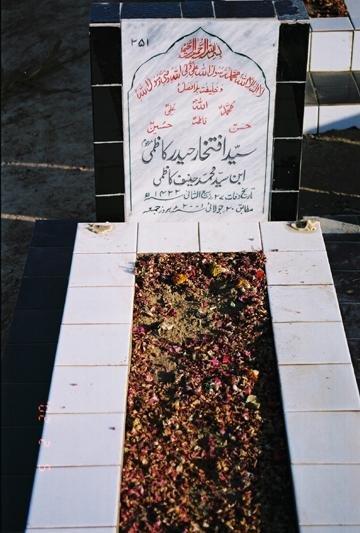 ۲۵۱
بسم اللہ الرحمن الرحیم
لا الہ الا اللہ محمد رسول اللہ علی ولی اللہ وصی رسول اللہ
وخلیفتہ بلا فصل
محمدؐ اللہ علیؑ
حسنؑ فاطمہؑ حسینؑ
سید افتخار حیدر کاظمی
ابن سید محمد حنیف کاظمی
تاریخ وفات ۲۷ ربیع الثانی ۱۴۲۲ھ
مطابق ۲۰ جولائی بروز جمعہ